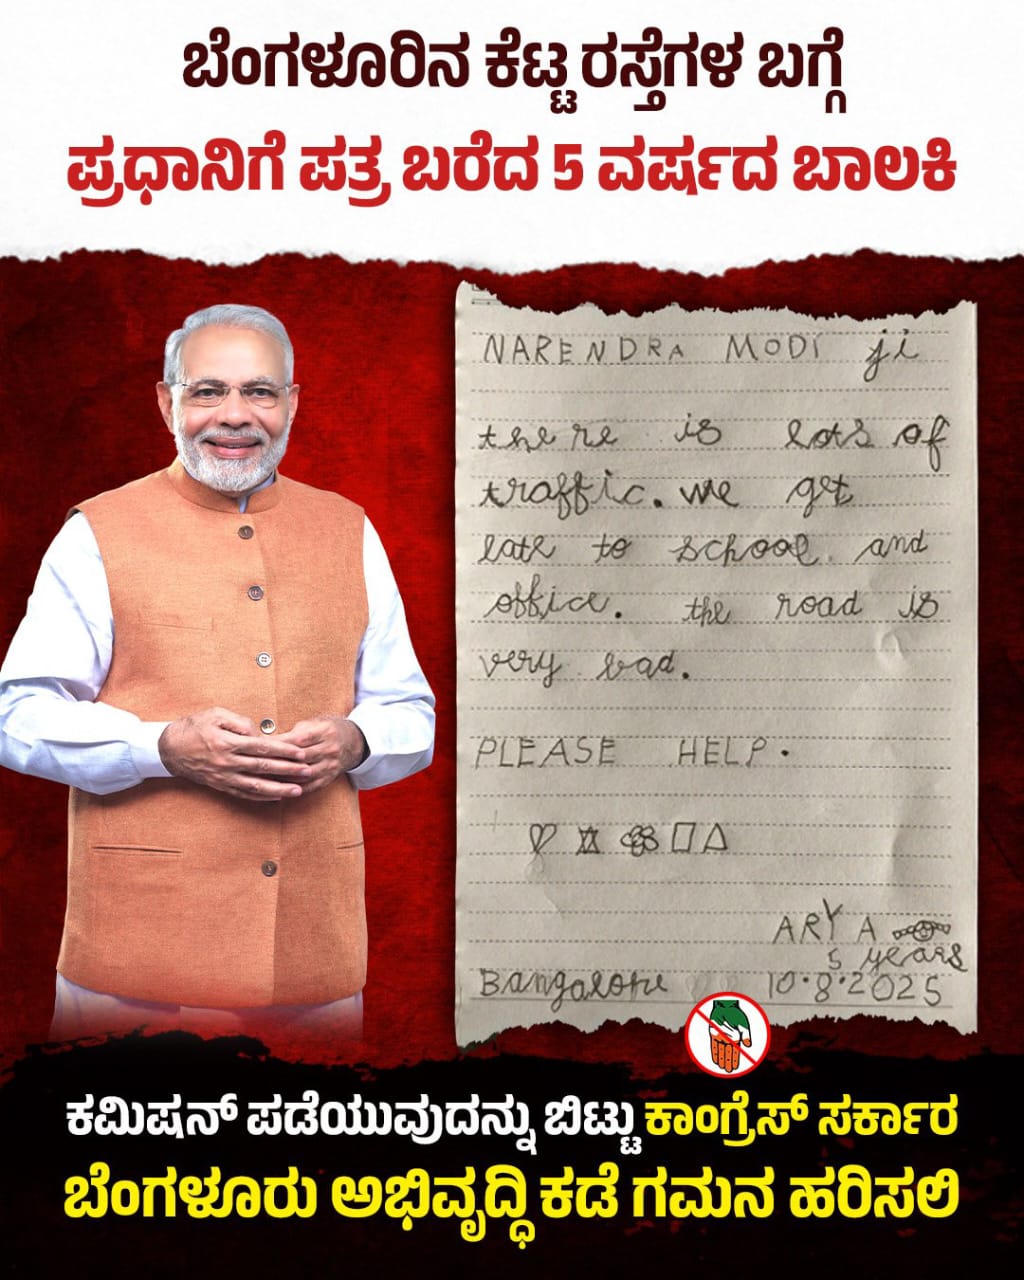 ಬೆಂಗಳೂರಿನ ಕೆಟ್ಟ ರಸ್ತೆಗಳ ಬಗ್ಗೆ
ಪ್ರಧಾನಿಗೆ ಪತ್ರ ಬರೆದ 5 ವರ್ಷದ ಬಾಲಕಿ
NARENDRA MODI ji
there is lots of
traffic. we get
late to school and
office. the road is
very bad.
PLEASE HELP.
ARYA
5 years
Bangalore 10.8.2025
ಕಮಿಷನ್ ಪಡೆಯುವುದನ್ನು ಬಿಟ್ಟು ಕಾಂಗ್ರೆಸ್ ಸರ್ಕಾರ
ಬೆಂಗಳೂರು ಅಭಿವೃದ್ಧಿ ಕಡೆ ಗಮನ ಹರಿಸಲಿ